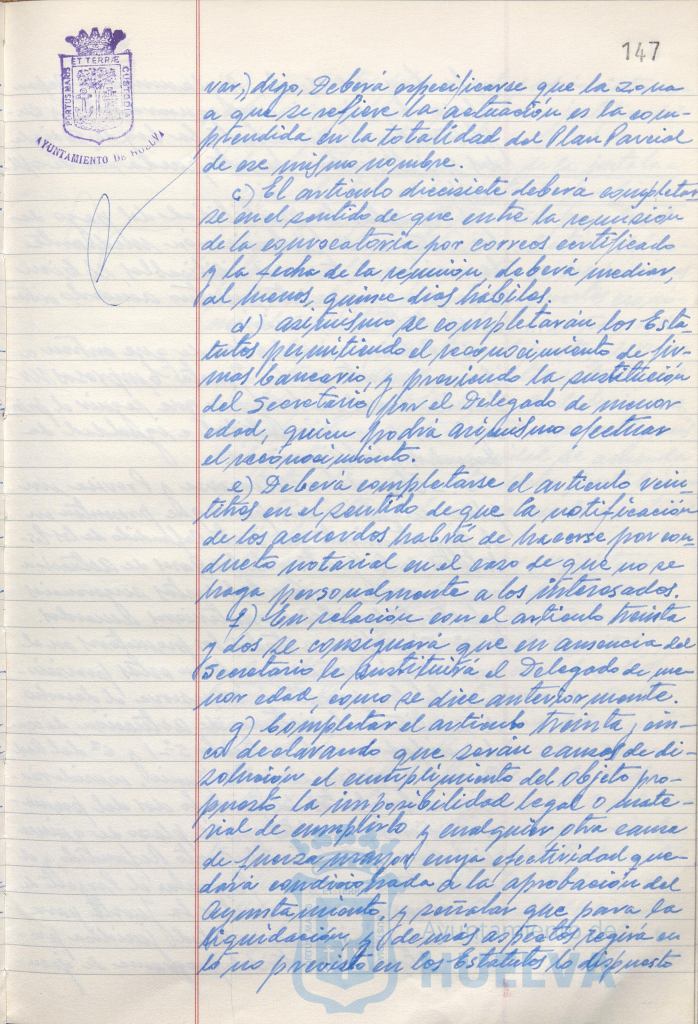 147
PORTUS MARIS ET TERRÆ CUSTODIA
AYUNTAMIENTO DE HUELVA
var,) digo, Deberá especificarse que la zona
a que se refiere la actuación es la com-
prendida en la totalidad del Plan Parcial
de ese mismo nombre.
c) El articulo diecisiete deberá completar
se en el sentido de que entre la remisión
de la convocatoria por correos certificado
y la fecha de la reunión, deberá mediar,
al menos, quince dias hábiles.
d) asimismo se completarán los Esta-
tutos permitiendo el reconocimiento de fir-
mas bancario, y previendo la sustitución
del Secretario por el Delegado de menor
edad, quien podrá asimismo efectuar
el reconocimiento.
e) Deberá completarse el articulo vein-
titres en el sentido de que la notificación
de los acuerdos habrá de hacerse por con-
ducto notarial en el caso de que no se
haga personalmente a los interesados.
f) En relación con el articulo treinta
y dos se consignará que en ausencia del
Secretario le sustituirá el Delegado de me-
nor edad, como se dice anteriormente.
g) Completar el articulo treinta y cin-
co declarando que serán causas de di-
solución el cumplimiento del objeto pro-
puesto la imposibilidad legal o mate-
rial de cumplirlo y cualquier otra causa
de fuerza mayor cuya efectividad que-
dará condicionada a la aprobación del
Ayuntamiento, y señalar que para la
liquidación y demas aspectos regirá en
lo no previsto en los Estatutos lo dispuesto
Ayuntamiento de
HUELVA